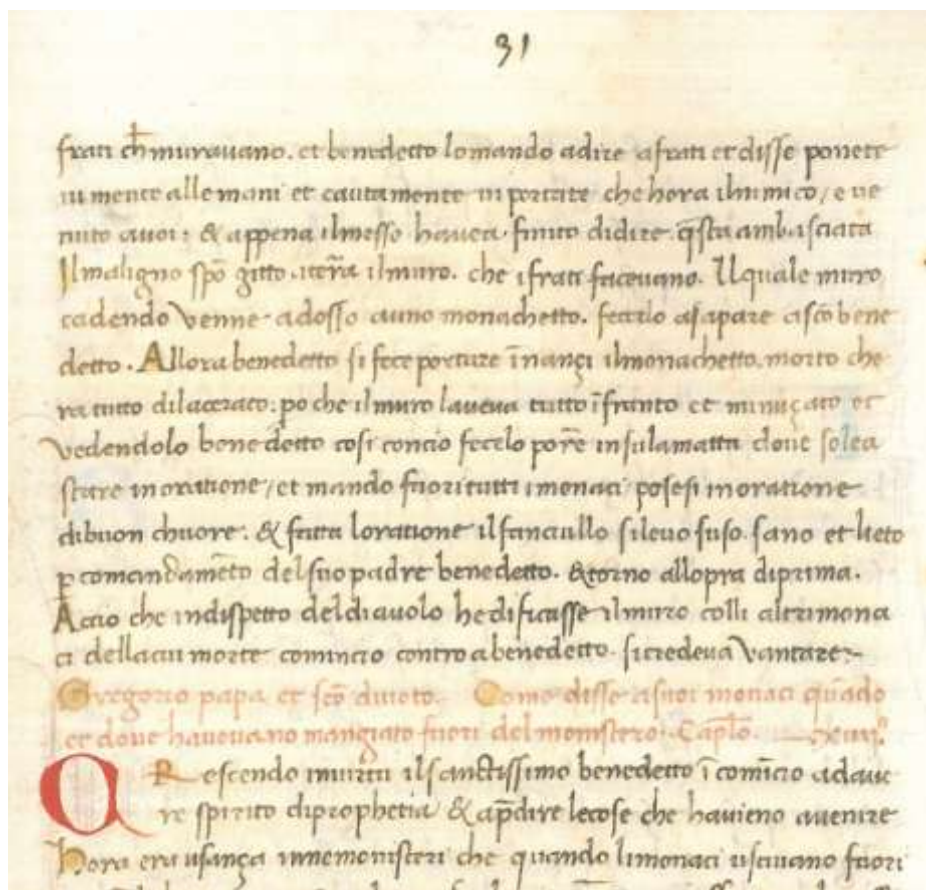 31
frati ch̄ muravano. et benedetto lomando adire afrati et disse ponete
iu mente alle mani et cautamente ui portate che hora ilnimico / e ue
nuto auoi: & appena ilmesso haueа finito didire q̄sta ambasciata
Ilmaligno sp̄o gitto ī terra ilmuro. che ifrati faceuano. Ilquale muro
cadendo venne adosso auno monachetto. fecirlo asapare asc̄o bene
detto. Allora benedetto si fece portare īnançi ilmonachetto. morto che
ra tutto dilacerato. po che ilmuro laueua tutto īfranto et minuçato et
vedendolo benedetto cosi concio fecelo por̄e insulamatta doue solea
stare inoratione / et mando fuori tutti imonaci posesi inoratione
dibuon chuore. & fatta loratione ilfanciullo sileuo suso. sano et lieto
p comandam̄eto delsuo padre benedetto. & torno allopra diprima.
Accio che indispetto deldiauolo hedificasse ilmuro colli altrimona
ci dellacui morte comincio contro abenedetto. sicredeua vantare.
Gregorio papa et sc̄o diuoto. Como disse asuoi monaci qūado
et doue haueuano mangiato fuori delmonistero. Cap̄lo.
Q Rescendo ilsanctissimo benedetto ī comīcio adaue
re spirito diprophetia & ap̄dire lecose che hauieno auenire
Hora era usança innemonisteri che quando limonaci usciuano fuori